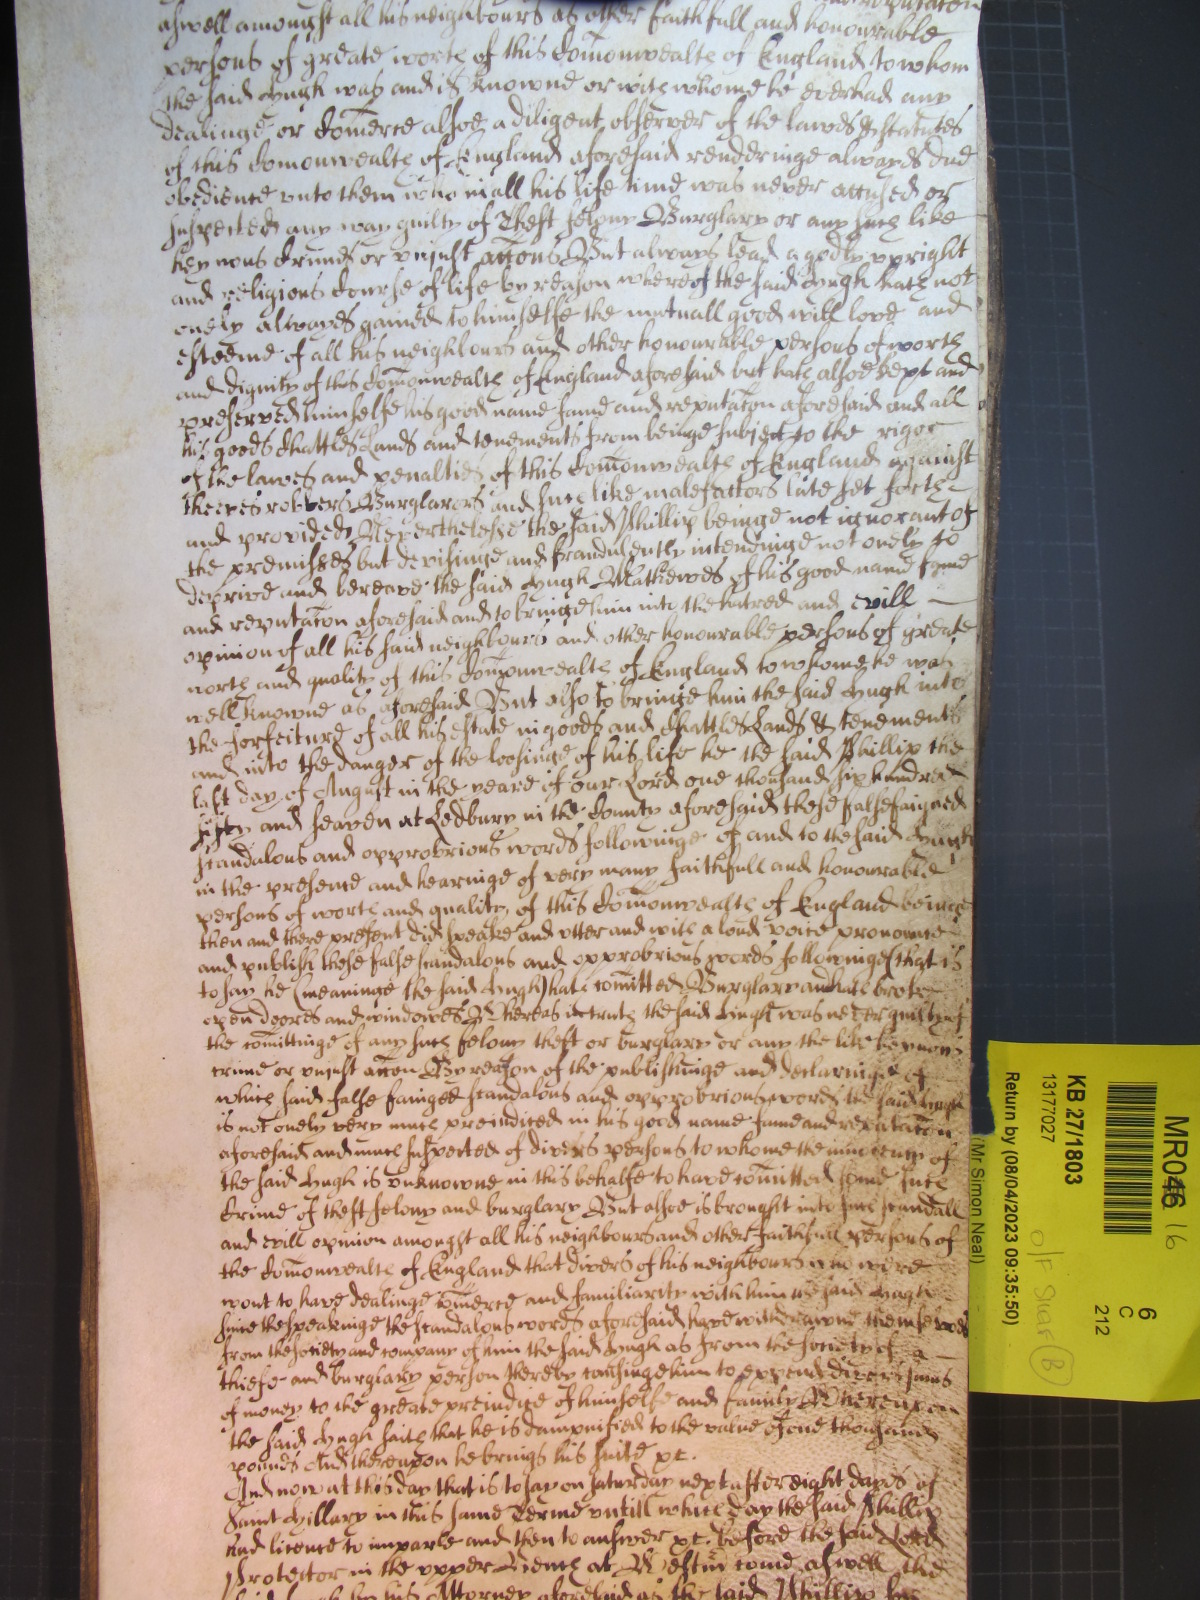 aswell amongst all his neighbours as other faithfull and honourable
persons of greate worth of this Comonwealth of England to whom
the said Hugh was and is knowne or with whome he ever had any
dealinge or Comerce alsoe a diligent observer of the lawes & statutes
of this Comonwealth of England aforesaid renderinge alwayes due
obedience unto them who in all his life time was never accused or
suspected any way guilty of Theft felony Burglary or any such like
heynous Crimes or unjust accons But always lead a godly upright
and religious Course of life by reason whereof the said Hugh hath not
onely alwayes gained to himselfe the mutuall good will love and
esteeme of all his neighbours and other honourable persons of worth
and dignity of this Comonwealth of England aforesaid but hath alsoe kept and
preserved himselfe his good name fame and reputacon aforesaid and all
his goods Chattles Lands and tenements from beinge subject to the rigor
of the lawes and penalties of this Comonwealth of England against
theeves robbers Burglarors and such like malefactors late set forth
and provided Neverthelesse the said Phillip beinge not ignorant of
the premisses but devisinge and fraudulently intendinge not onely to
deprive and bereave the said Hugh Mathewes of his good name fame
and reputacon aforesaid and to bringe him into the hatred and evill
opinion of all his said neighbours and other honourable persons of greate
worth and quality of this Comonwealth of England to whome he was
well knowne as aforesaid But also to bringe him the said Hugh into
the forfeiture of all his estate in goods and Chattles Lands & tenements
and into the danger of the loosinge of his life he the said Phillip the
last day of August in the yeare of our Lord one thousand six hundred
fifty and seaven at Ledbury in the County aforesaid these false faigned
scandalous and opprobrious words followinge of and to the said Hugh
in the presence and hearinge of very many faithfull and honourable
persons of worth and quality of this Comonwealth of England beinge
then and there present did speake and utter and with a loud voice pronounce
and publish these false scandalous and opprobrious words followinge (that is
to say he (meaninge the said Hugh) hath comitted Burglary and hath broke
open doores and windowes Whereas in truth the said Hugh was never guilty of
the comittinge of any such felony theft or burglary or any the like heynous
crime or unjust accon By reason of the publishinge and declaringe of
which said false fainged scandalous and opprobrious words the said Hugh
is not onely very much prejudiced in his good name fame and reputacon
aforesaid and much suspected of divers persons to whome the innocency of
the said Hugh is unknowne in this behalfe to have comitted some such
Crime of theft felony and burglary But alsoe is brought into such scandall
and evill opinion amongst all his neighbours and other faithfull persons of
the Comonwealth of England that divers of his neighbours who were
wont to have dealinge comerce and familiarity with him the said Hugh
since the speakinge the scandalous words aforesaid have withdrawne themselves
from the society and company of him the said Hugh as from the society of a
thiefe and burglary person thereby causinge him to expend divers sums
of money to the greate prejudice of himselfe and family Whereupon
the said Hugh saith that he is dampnified to the value of one thousand
pounds And thereupon he brings his suite &c.
And now at this day that is to say on Saturday next after eight dayes of
Saint Hillary in this same Terme untill which day the said Phillip
had licence to imparle and then to answer &c. before the said Lord
Protector in the upper Bench at Westm come aswell the
said Hugh by his Attorney aforesaid as the said Phillip by
MR046
16
6
C
212
KB 27/1803
13177027
Return by (08/04/2023 09:35:50)
(Mr Simon Neal)
O/F Staff
B